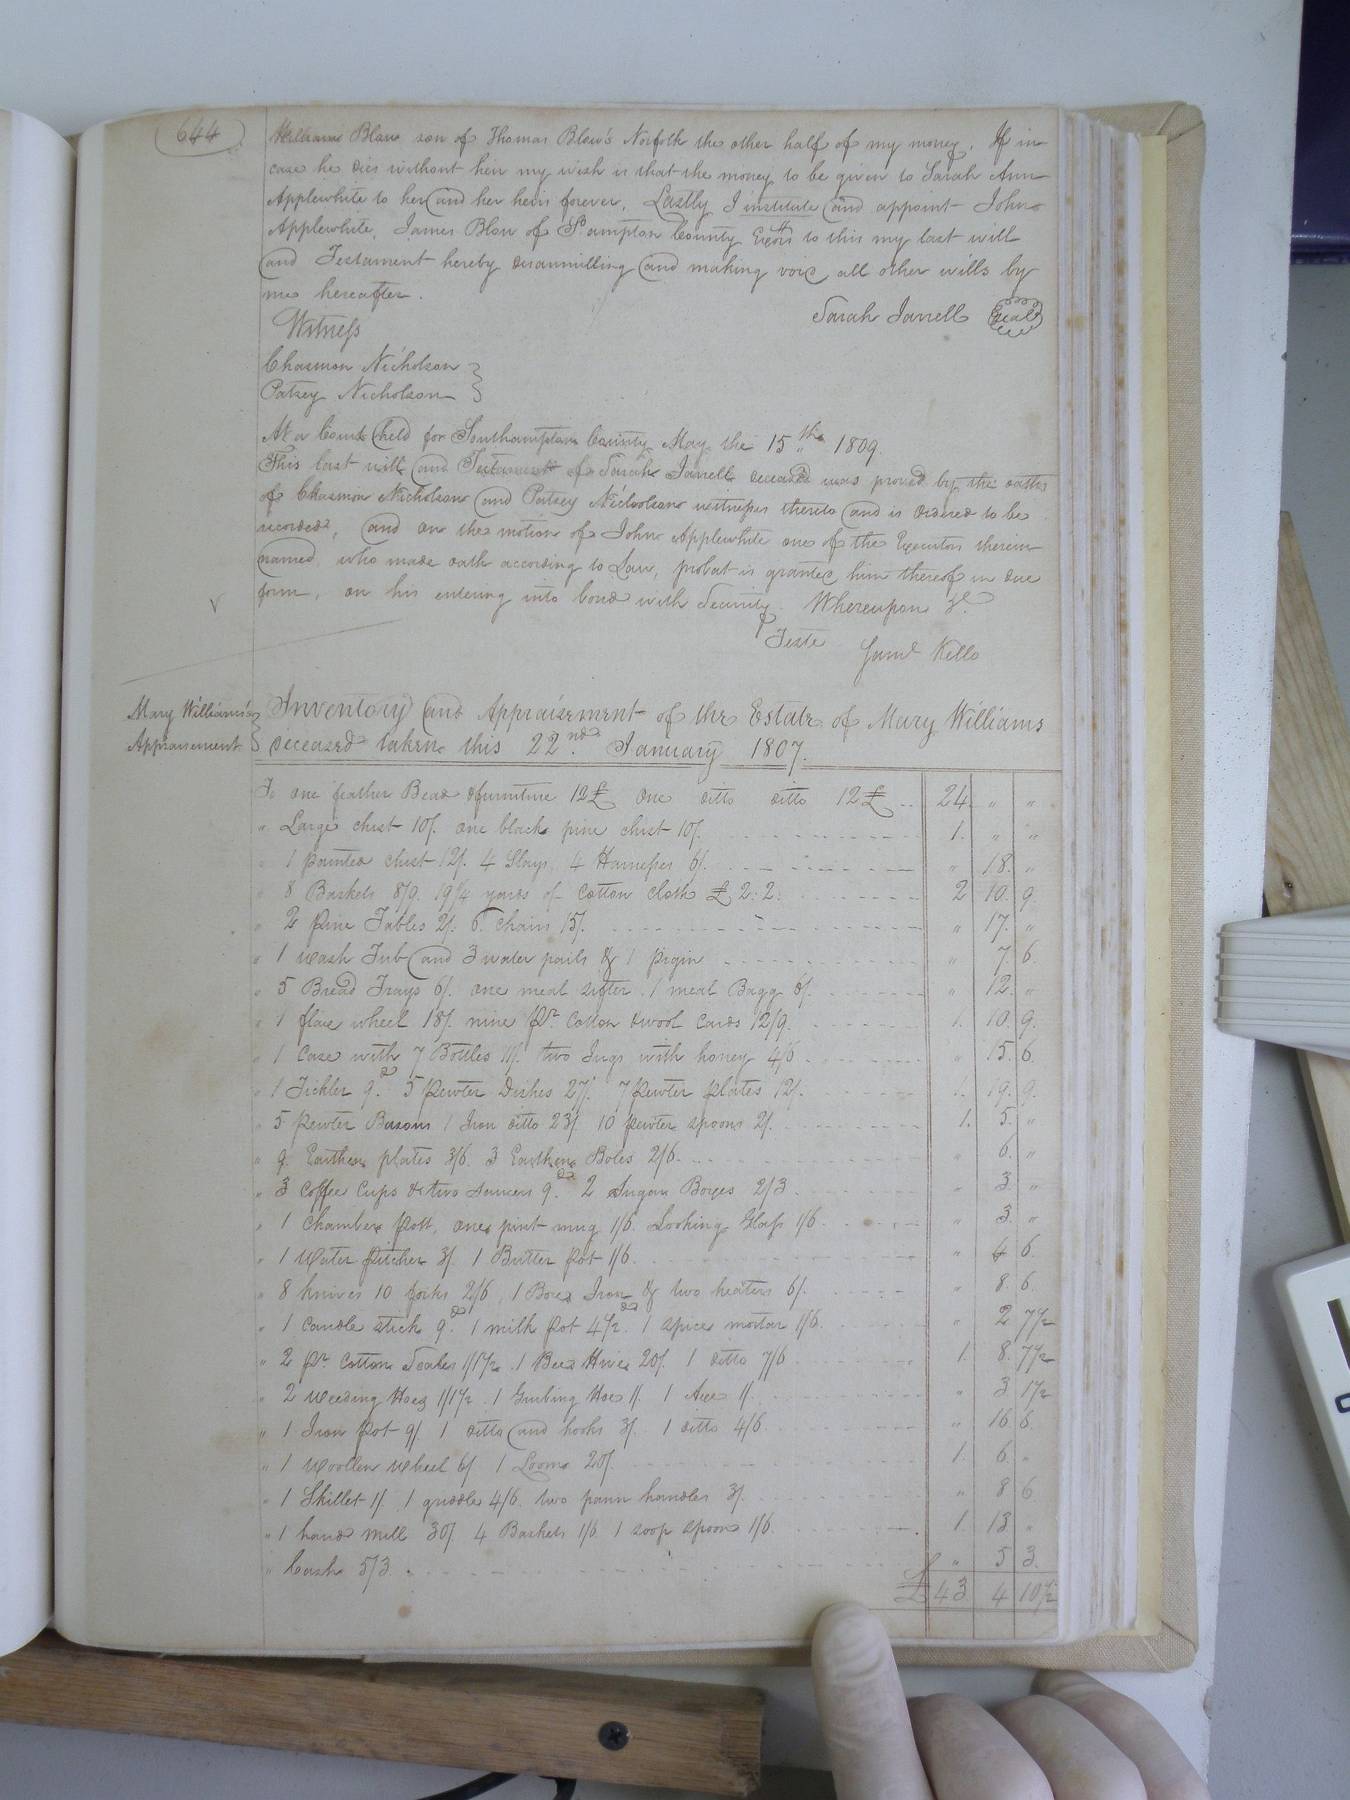 644
William Blow son of Thomas Blow's Norfolk the other half of my money. If in
case he dies without heir my wish is that the money to be given to Sarah Ann
Applewhite to her and her heirs forever. Lastly I institute and appoint John
Applewhite, James Blow of S.ampton County Exors to this my last will
and Testament hereby disannulling and making void all other wills by
me hereafter.
Sarah Jarrell Seal
Witness
Chasmon Nicholson
Patsey Nicholson
At a Court held for Southampton County May the 15th 1809.
This last will and Testament of Sarah Jarrell deceased was proved by the oaths
of Chasmon Nicholson and Patsey Nicholson witnesses thereto and is ordered to be
recorded, and on the motion of John Applewhite one of the Executors therein
named, who made oath according to Law, probat is granted him thereof in due
form, on his entering into bond with Security. Whereupon &c
Teste Saml Kello
Mary William's
Appraisement
Inventory and Appraisement of the Estate of Mary Williams
deceased taken this 22nd January 1807.
To one feather Bead & furniture 12£ One ditto ditto 12£ .. 24. " "
" Large chest 10/. one black pine chest 10/. 1. " "
" 1 painted chest 12/. 4 Slays, 4 Harnesses 6/. " 18. "
" 8 Baskets 8/9. 19¼ yards of cotton cloth £2.2. 2 10. 9.
" 2 Pine Tables 2/. 6 Chairs 15/. " 17. "
" 1 wash Tub and 3 water pails & 1 pigin " 7. 6.
" 5 Bread Trays 6/. one meal sifter. 1 meal Bagg 6/. " 12. "
" 1 flax wheel 18/. nine pr. cotton & wool cards 12/9. 1. 10. 9.
" 1 Case with 7 Bottles 11/. two Jugs with honey 4/6. " 15. 6.
" 1 Tickler 9d. 5 pewter Dishes 27/. 7 pewter plates 12/. 1. 19. 9.
" 5 Pewter Basons 1 Iron ditto 23/. 10 pewter spoons 2/. 1. 5. "
" 9. Earthen plates 3/6. 3 Earthen Boles 2/6. " 6. "
" 3 Coffee Cups & two saucers 9d. 2 Sugar Boxes 2/3. " 3. "
" 1 chamber pott, one pint mug 1/6. Looking Glass 1/6. " 3. "
" 1 Water pitcher 3/. 1 Butter pot 1/6. " 4 6.
" 8 knives 10 forks 2/6. 1 Box Iron & two heaters 6/. " 8. 6.
" 1 candle stick 9d. 1 milk pot 4½d. 1 spice mortar 1/6. " 2 7½
" 2 pr. Cotton Scales 1/1½. 1 Bee Hive 20/. 1 ditto 7/6 1. 8. 7½
" 2 Weeding Hoes 1/1½. 1 Grubing Hoe 1/. 1 Axe 1/. " 3. 1½
" 1 Iron pot 9/. 1 ditto and hooks 3/. 1 ditto 4/6. " 16 6.
" 1 Woollen wheel 6/. 1 Loom 20/. 1. 6. "
" 1 Skillet 1/. 1 griddle 4/6. two pann handles 3/. " 8 6
" 1 hand mill 30/. 4 Baskets 1/6. 1 soop spoon 1/6. 1. 13 "
" Cash 5/3. " 5 3.
£ 43 4 10½